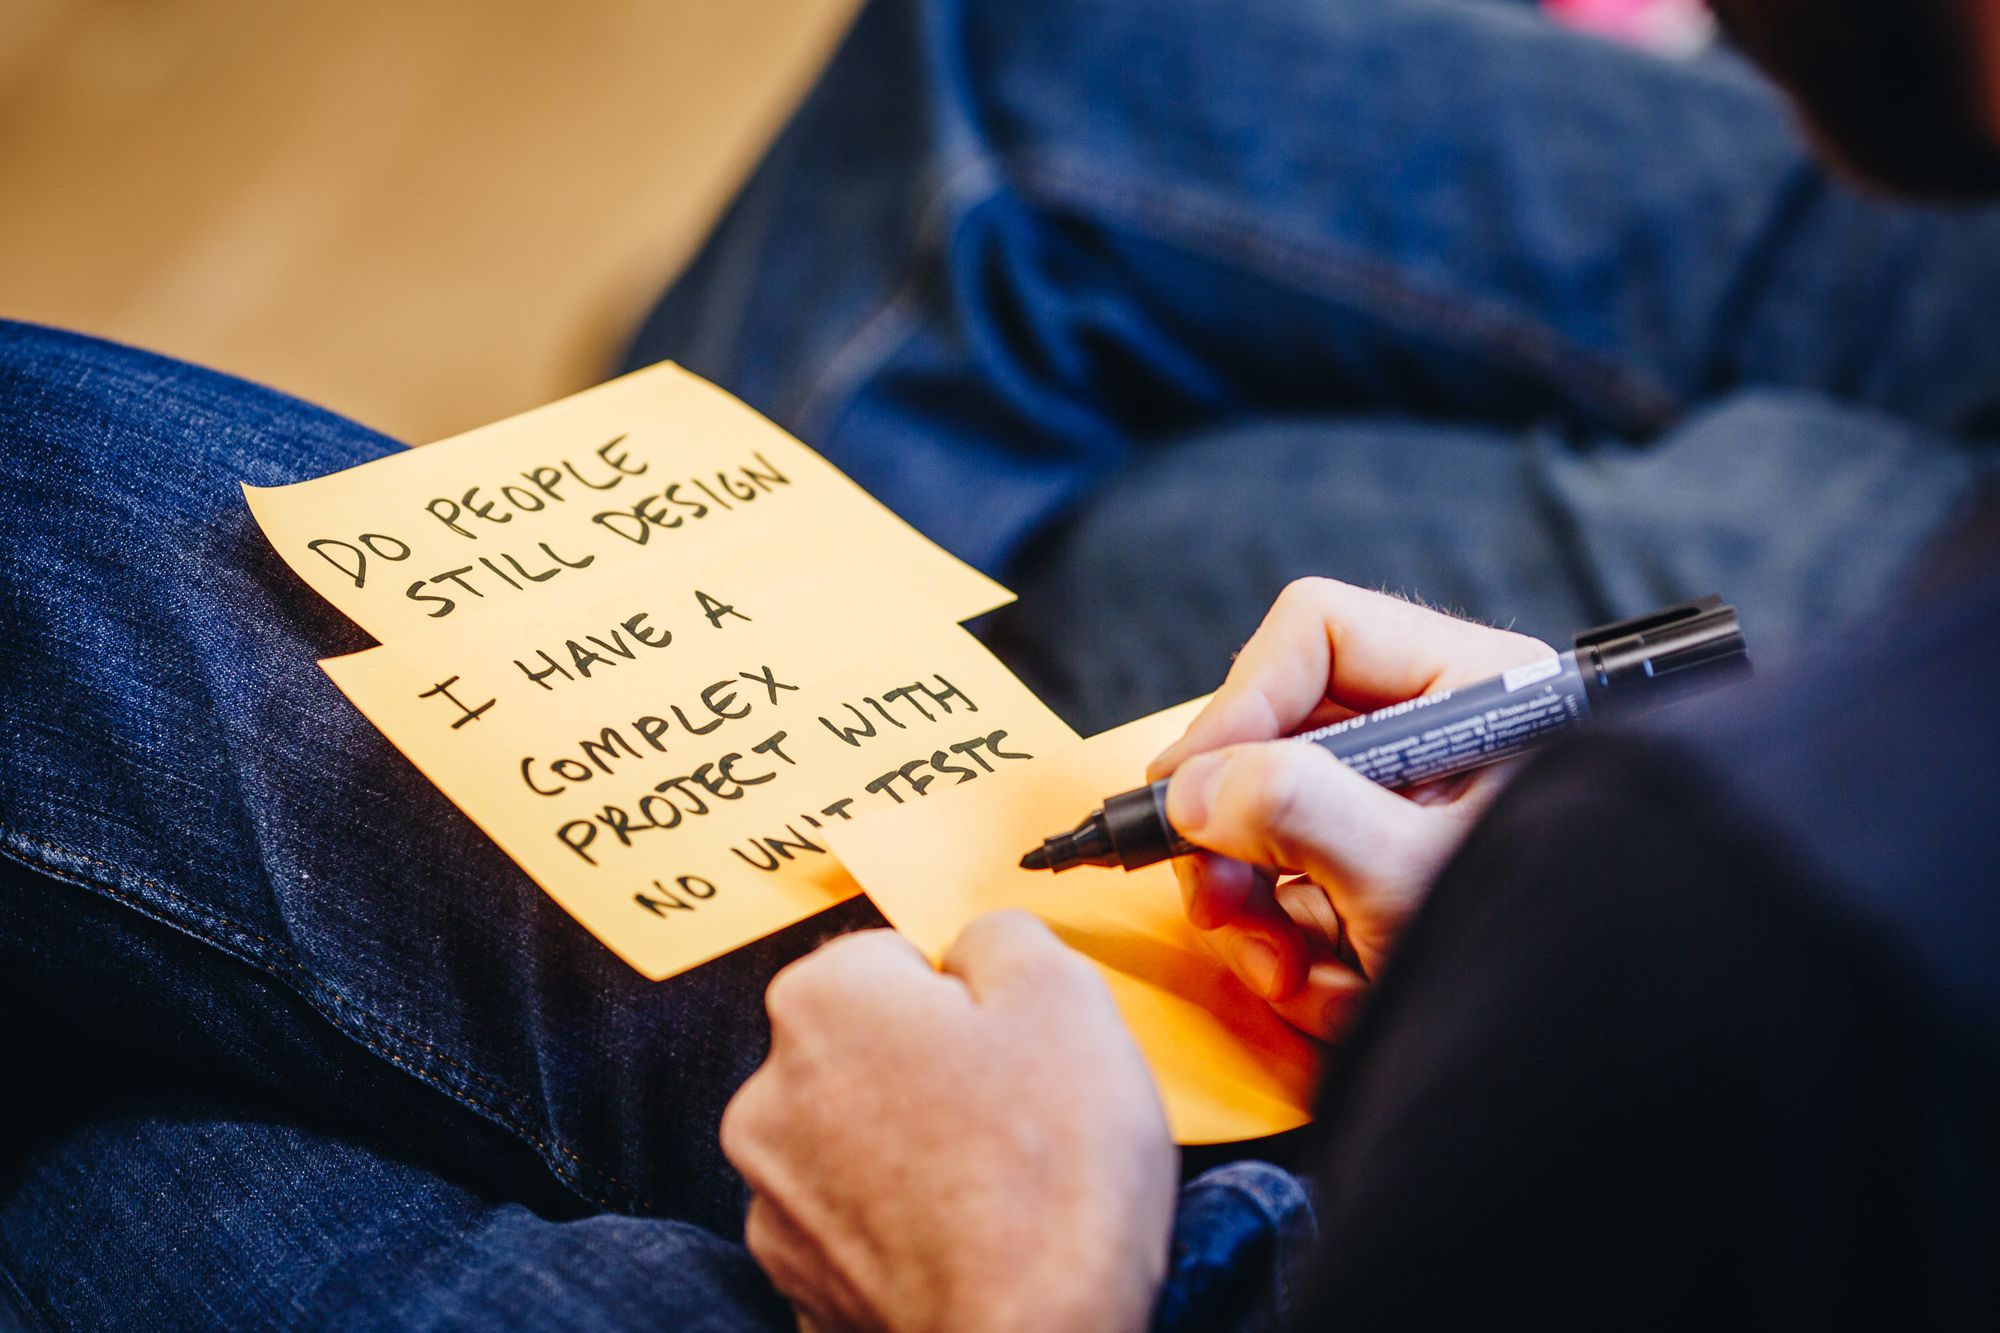 DO PEOPLE
STILL DESIGN
I HAVE A
COMPLEX
PROJECT WITH
NO UNIT TESTS
board marker